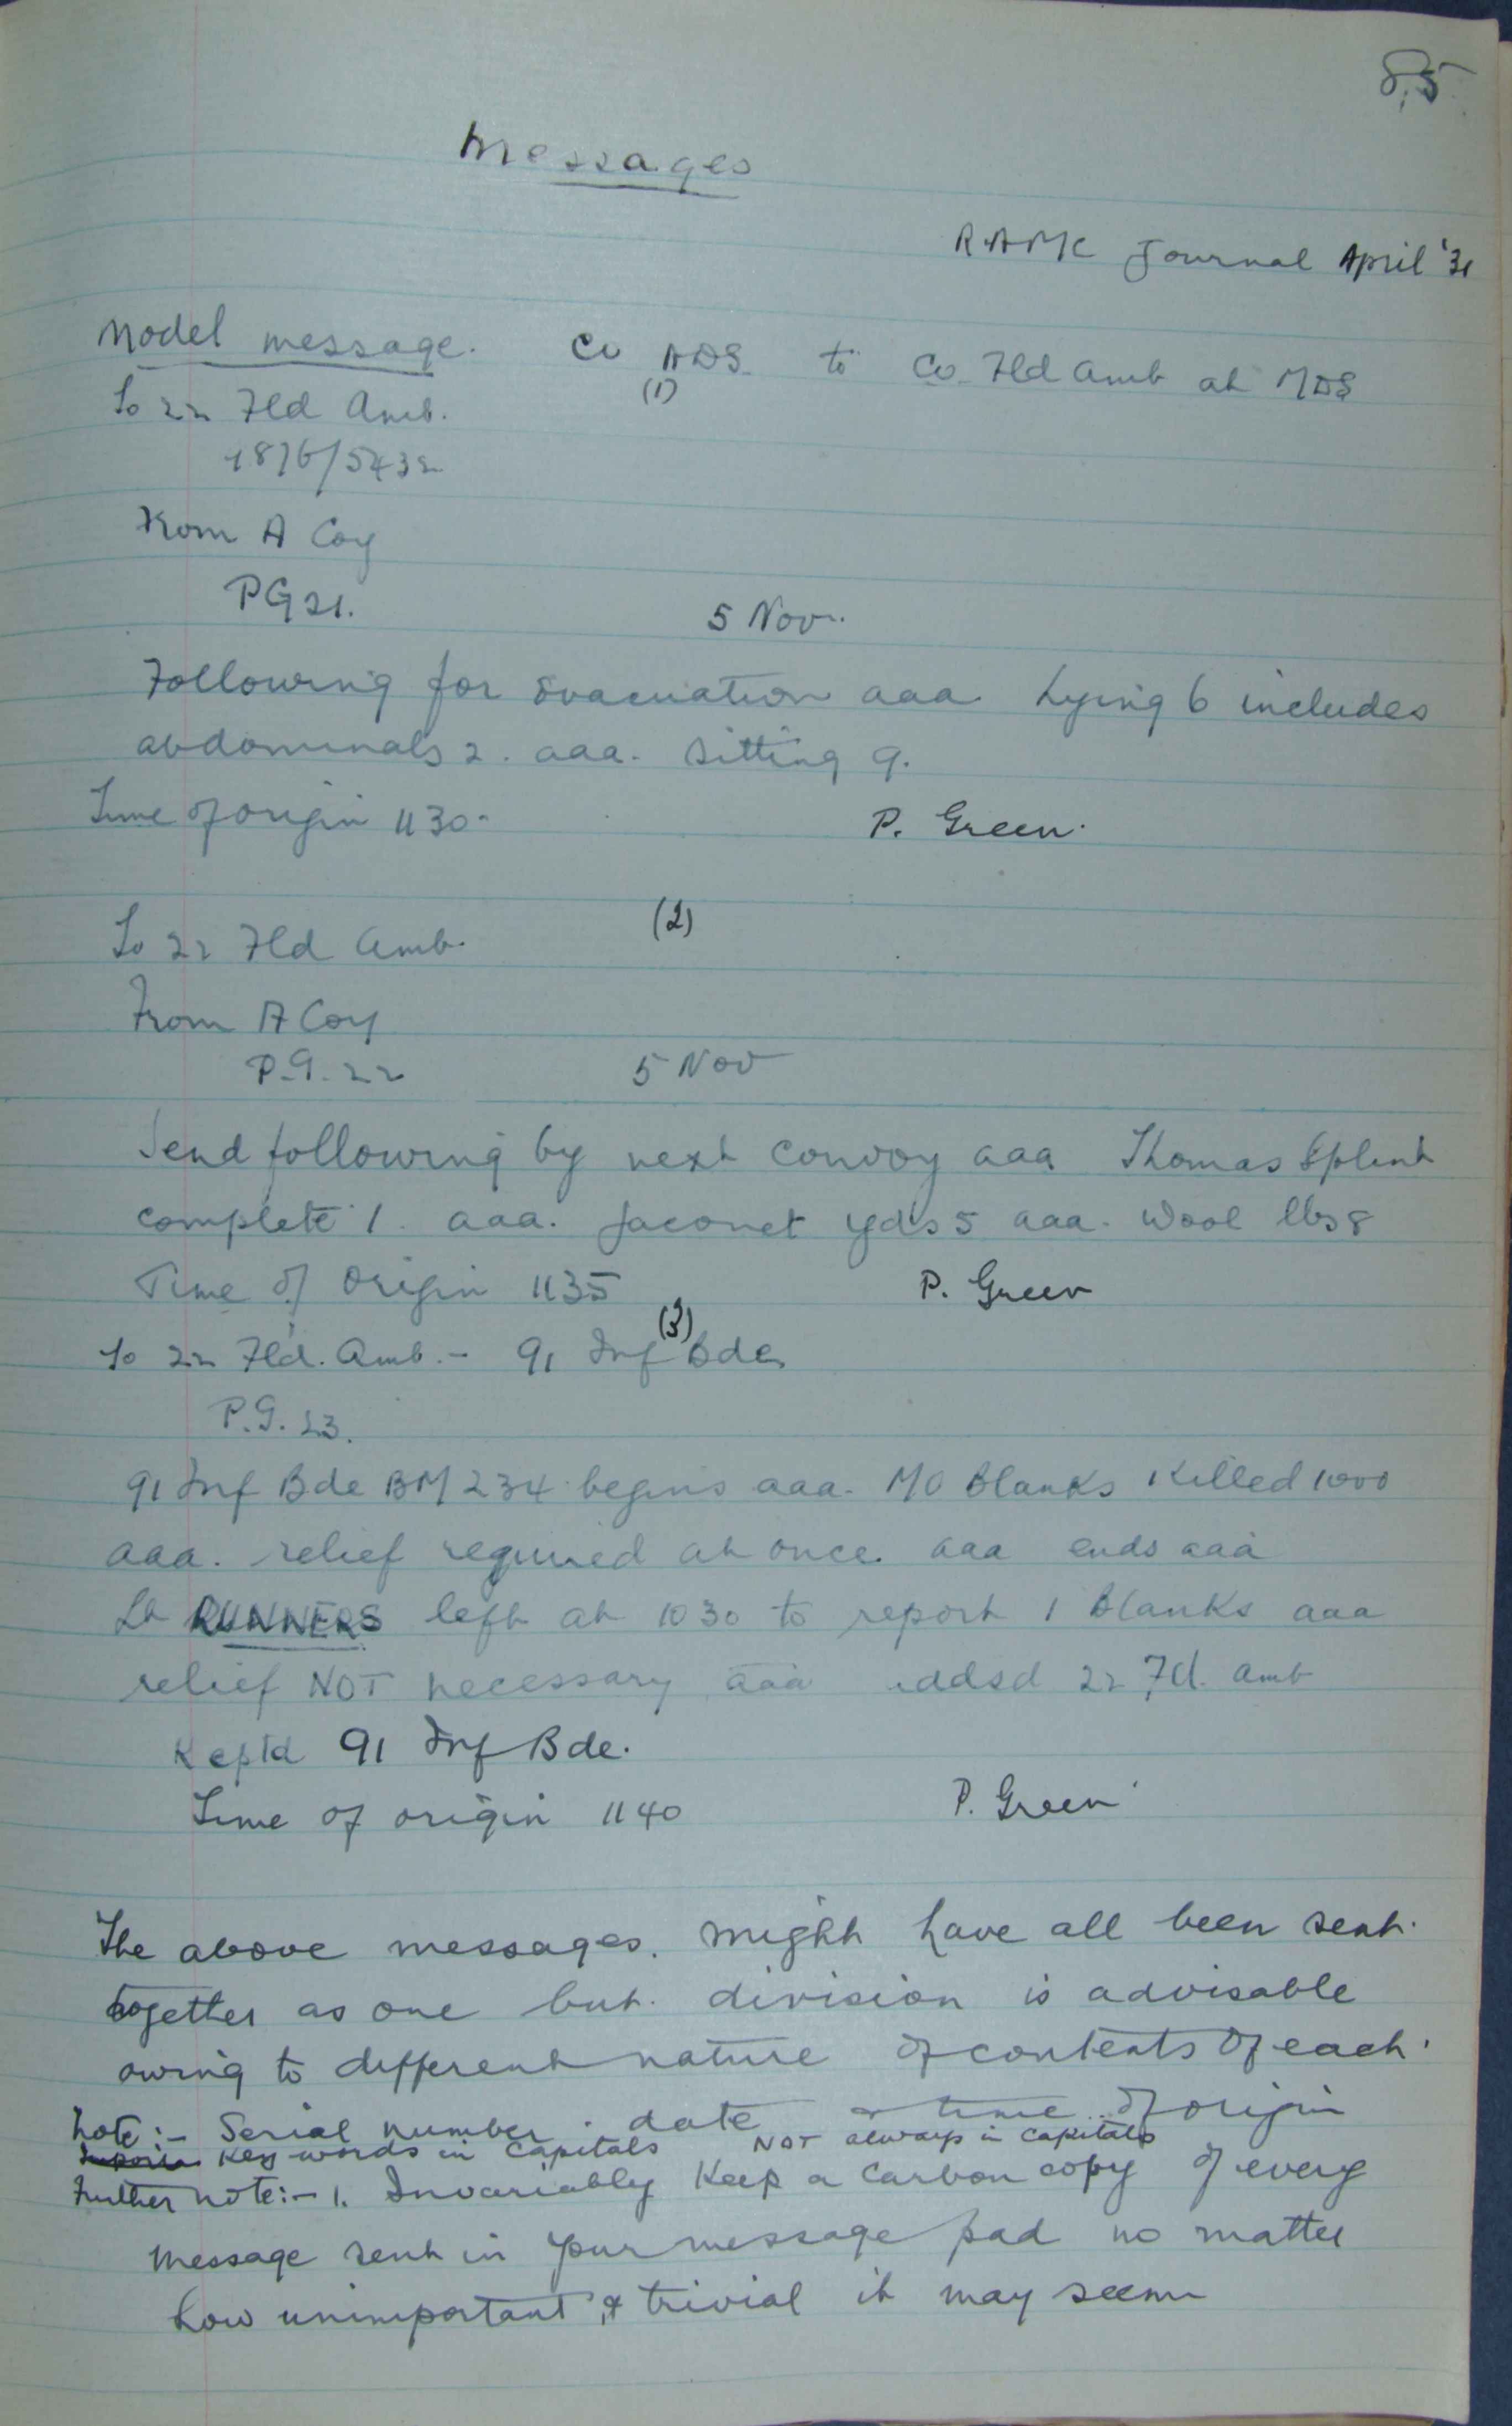 85
Messages
RAMC Journal April '31
Model message. CO ADS to CO Fld Amb at MDS
(1)
To 22 Fld Amb.
1876/5432
From A Coy
PG 21. 5 Nov.
Following for evacuation aaa. Lying 6 includes
abdominals 2. aaa. Sitting 9.
Time of origin 1130. P. Green.
(2)
To 22 Fld Amb.
From A Coy
P.G. 22 5 Nov
Send following by next convoy aaa Thomas Splint
complete 1. aaa. Jaconet yds 5 aaa. Wool lbs 8
Time of Origin 1135 P. Green
(3)
To 22 Fld. Amb. - 91 Inf Bde.
P.G. 23.
91 Inf Bde BM 234 begins aaa. MO Blanks Killed 1000
aaa. relief required at once. aaa ends aaa
Lt RUNNERS left at 1030 to report 1 Blanks aaa
relief NOT necessary aaa addsd 22 Fd. Amb
Reptd 91 Inf Bde.
Time of origin 1140 P. Green
The above messages. might have all been sent.
together as one but. division is advisable
owing to different nature of contents of each.
Note:- Serial number. date & time of origin
Key words in Capitals NOT always in capitals
Further note:- 1. Invariably Keep a Carbon copy of every
message sent in your message pad no matter
how unimportant & trivial it may seem